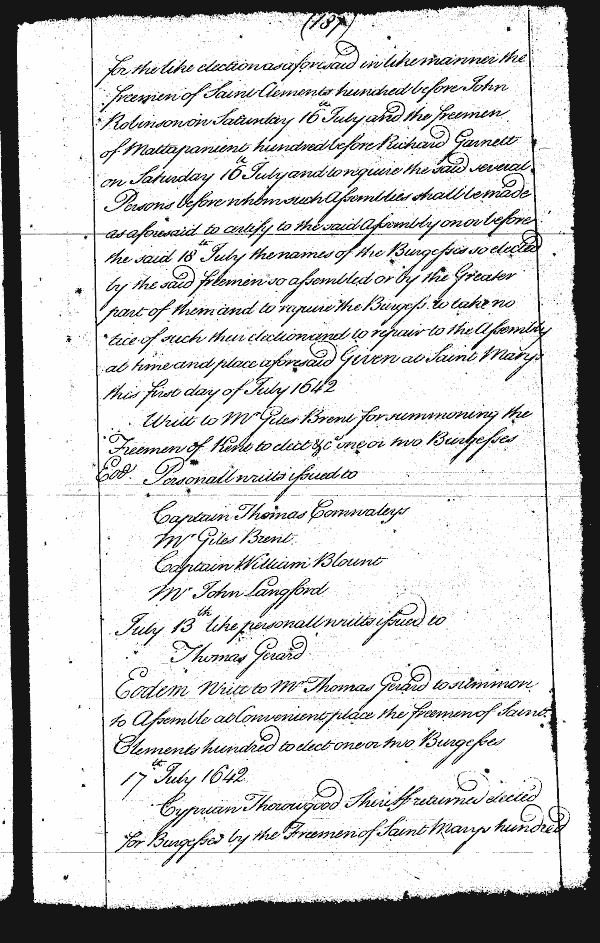 (187)
for the like election as aforesaid in like manner the
freemen of Saint Clements hundred before John
Robinson on Saturday 16th July and the freemen
of Mattapanient hundred before Richard Garnett
on Saturday 16th July and to require the said several
Persons before whom such Assemblies shall be made
as aforesaid to certify to the said Assembly on or before
the said 18th July the names of the Burgesses so elected
by the said freemen so assembled or by the Greater
part of them and to require the Burgess to take no
tice of such their election and to repair to the Assembly
at time and place aforesaid Given at Saint Marys
this first day of July 1642
Writt to Mr Giles Brent for summoning the
Freemen of Kent to elect &c one or two Burgesses
Eod. Personall writts issued to
Captain Thomas Cornwaleys
Mr Giles Brent
Captain William Blount
Mr John Langford
July 13th like personall writts issued to
Thomas Gerard
Eodem Writt to Mr Thomas Gerard to summon
to Assemble at Convenient place the freemen of Saint
Clements hundred to elect one or two Burgesses
17th July 1642
Cyprian Thorowgood Sheriff returned elected
for Burgesses by the Freemen of Saint Marys hundred